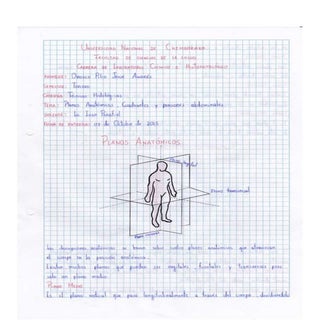 Universidad Nacional de Chimborazo
Facultad de ciencias de la salud
Carrera de Laboratorio Clínico e Histopatológico
Nombre:
Semestre: Tercero
Cátedra: Técnicas Histológicas
Tema: Planos Anatómicos, Cuadrantes y regiones abdominales
Docente: Lic.
Fecha de entrega: de Octubre de 2015
Planos Anatómicos
Plano transversal
Las descripciones anatómicas se basan sobre cuatro planos anatómicos que atraviesan
el cuerpo en la posición anatómica
Existen muchos planos que pueden ser sagitales, frontales y transversos pero
solo un plano medio
Plano Medio
Es el plano vertical que pasa longitudinalmente a través del cuerpo, dividiéndolo